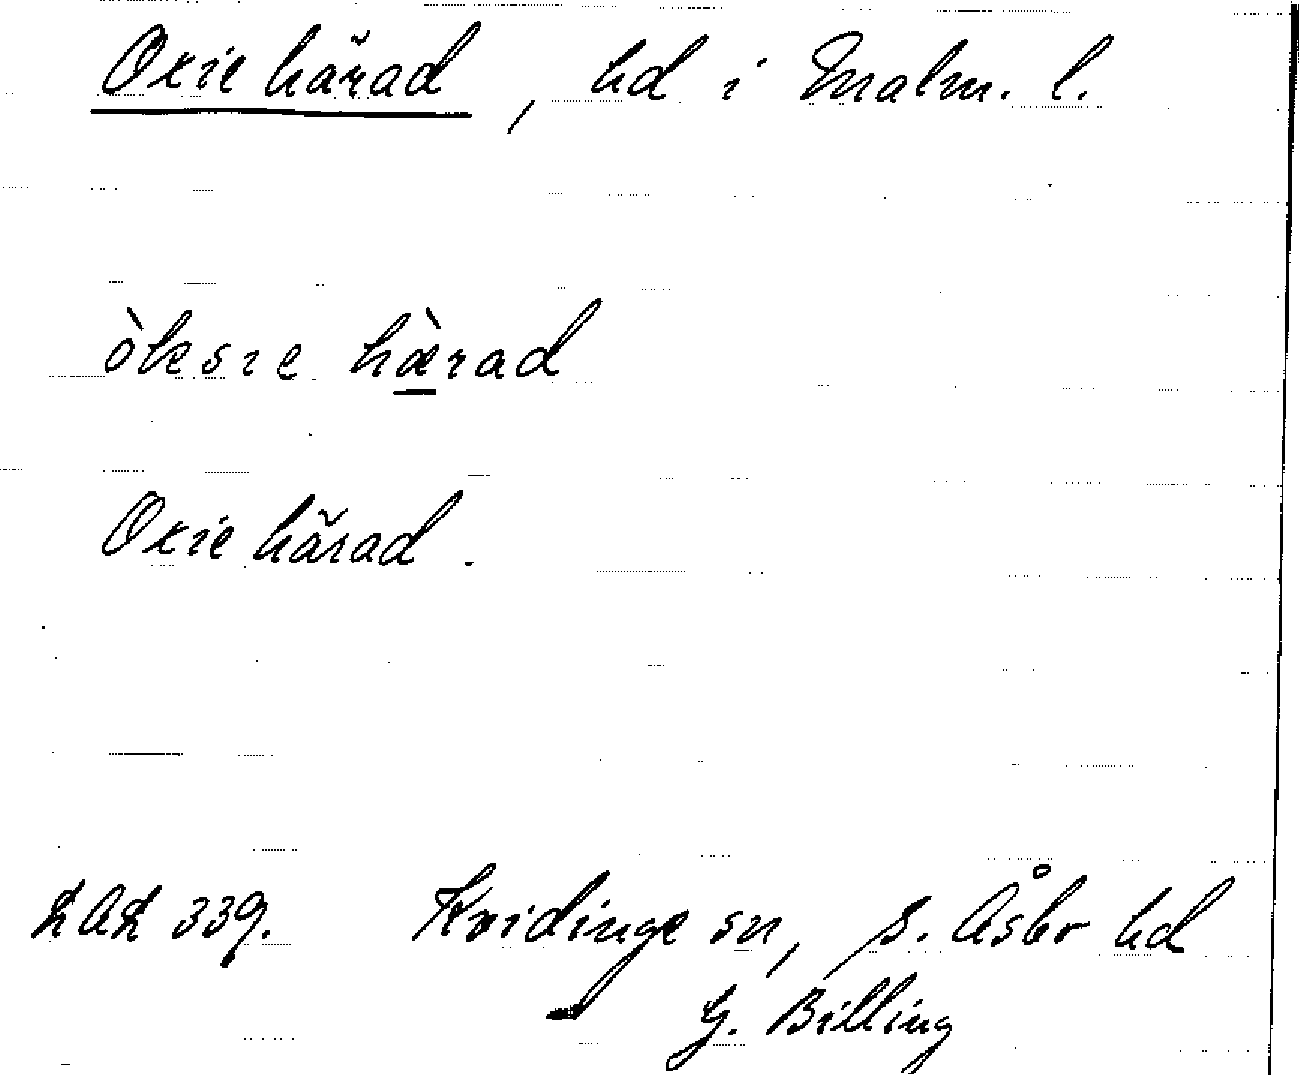 Oxie härad, hd i Malm. l.
òksıe hæ̀rad
Oxie härad.
LAL 339. Kvidinge sn, S. Åsbo hd
G. Billing